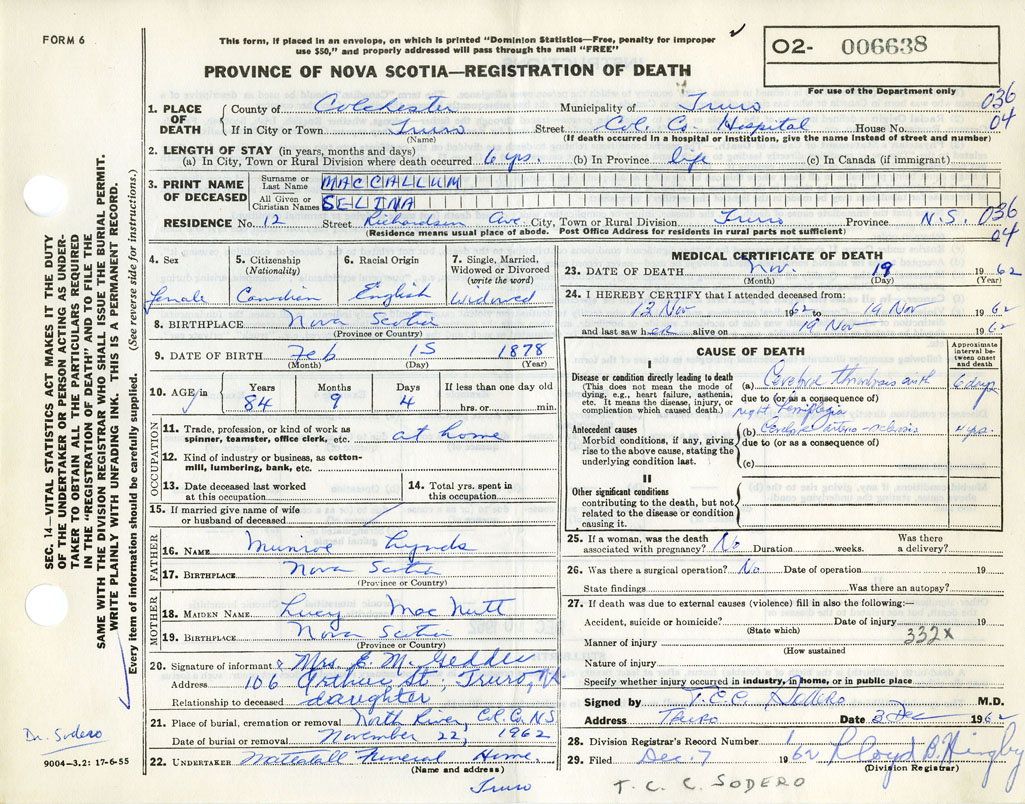 FORM 6
This form, if placed in an envelope, on which is printed "Dominion Statistics—Free, penalty for improper
use $50," and properly addressed will pass through the mail "FREE"
PROVINCE OF NOVA SCOTIA—REGISTRATION OF DEATH
O2- 006638
For use of the Department only
036
04
1. PLACE OF DEATH { County of Colchester Municipality of Truro
If in City or Town Truro Street Col. Co. Hospital House No.
(Name) (If death occurred in a hospital or institution, give the name instead of street and number)
2. LENGTH OF STAY (in years, months and days)
(a) In City, Town or Rural Division where death occurred 6 yrs. (b) In Province life (c) In Canada (if immigrant)
3. PRINT NAME OF DECEASED { Surname or Last Name MACCALLUM
All Given or Christian Names SELINA
RESIDENCE No. 12 Street Richardson Ave. City, Town or Rural Division Truro Province N.S. 036
(Residence means usual place of abode. Post Office Address for residents in rural parts not sufficient) 04
4. Sex female
5. Citizenship (Nationality) Canadian
6. Racial Origin English
7. Single, Married, Widowed or Divorced (write the word) Widowed
8. BIRTHPLACE Nova Scotia
(Province or Country)
9. DATE OF BIRTH Feb 15 1878
(Month) (Day) (Year)
10. AGE in Years 84 Months 9 Days 4 If less than one day old hrs. or min.
OCCUPATION
11. Trade, profession, or kind of work as
spinner, teamster, office clerk, etc. at home
12. Kind of industry or business, as cotton-
mill, lumbering, bank, etc.
13. Date deceased last worked
at this occupation
14. Total yrs. spent in
this occupation
15. If married give name of wife
or husband of deceased
FATHER
16. NAME Munroe Lynds
17. BIRTHPLACE Nova Scotia
(Province or Country)
MOTHER
18. MAIDEN NAME Lucy MacNutt
19. BIRTHPLACE Nova Scotia
(Province or Country)
20. Signature of informant Mrs. E. M. Geddes
Address 106 Arthur St., Truro, N.S.
Relationship to deceased daughter
21. Place of burial, cremation or removal North River, Col. Co. N.S.
Date of burial or removal November 22, 1962
22. UNDERTAKER Mattatall Funeral Home.
(Name and address)
Truro
MEDICAL CERTIFICATE OF DEATH
23. DATE OF DEATH Nov. 19 1962
(Month) (Day) (Year)
24. I HEREBY CERTIFY that I attended deceased from:
13 Nov 1962 to 19 Nov 1962
and last saw her alive on 19 Nov 1962
CAUSE OF DEATH
Approximate interval between onset and death
I
Disease or condition directly leading to death
(This does not mean the mode of
dying, e.g., heart failure, asthenia,
etc. It means the disease, injury, or
complication which caused death.)
(a) Cerebral thrombosis with 6 days
due to (or as a consequence of)
right hemiplegia
Antecedent causes
Morbid conditions, if any, giving
rise to the above cause, stating the
underlying condition last.
(b) Cerebral arterio-sclerosis yrs.
due to (or as a consequence of)
(c)
II
Other significant conditions
contributing to the death, but not
related to the disease or condition
causing it.
25. If a woman, was the death
associated with pregnancy? No Duration weeks. Was there
a delivery?
26. Was there a surgical operation? No Date of operation 19
State findings Was there an autopsy?
27. If death was due to external causes (violence) fill in also the following:—
Accident, suicide or homicide? Date of injury 19
(State which) 332x
Manner of injury
(How sustained)
Nature of injury
Specify whether injury occurred in industry, in home, or in public place
Signed by T.C.C. Sodero M.D.
Address Truro Date 3 Dec 1962
28. Division Registrar's Record Number
29. Filed Dec. 7 1962 Lloyd B.
(Division Registrar)
T. C. C. SODERO
SEC. 14—VITAL STATISTICS ACT MAKES IT THE DUTY
OF THE UNDERTAKER OR PERSON ACTING AS UNDER-
TAKER TO OBTAIN ALL THE PARTICULARS REQUIRED
IN THE "REGISTRATION OF DEATH" AND TO FILE THE
SAME WITH THE DIVISION REGISTRAR WHO SHALL ISSUE THE BURIAL PERMIT.
WRITE PLAINLY WITH UNFADING INK. THIS IS A PERMANENT RECORD.
Every item of information should be carefully supplied. (See reverse side for instructions.)
Dr. Sodero
9004-3.2: 17-6-55